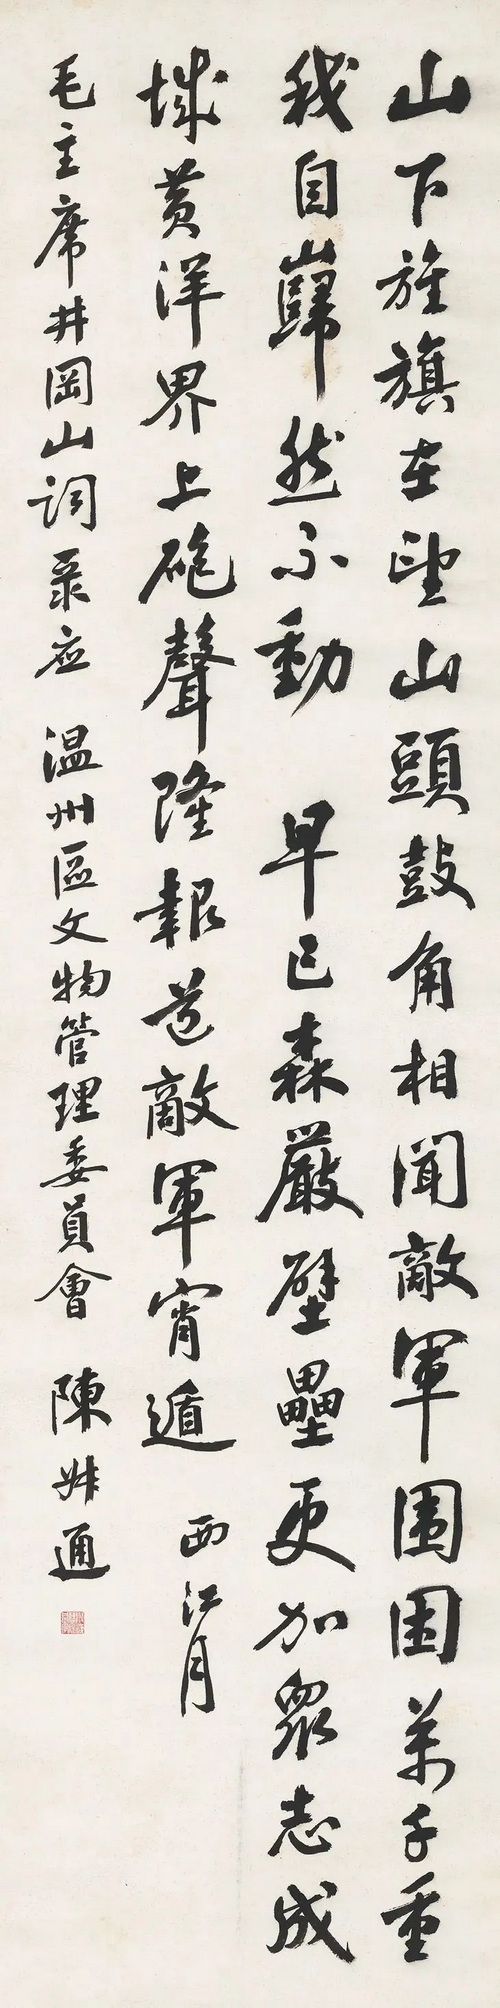 山下旌旗在望山頭鼓角相聞敵軍围困萬千重
我自巋然不動 早已森嚴壁壘更加眾志成
城黄洋界上砲聲隆報道敵軍宵遁 西江月
毛主席井岡山詞录应 温州區文物管理委員會 陳叔通